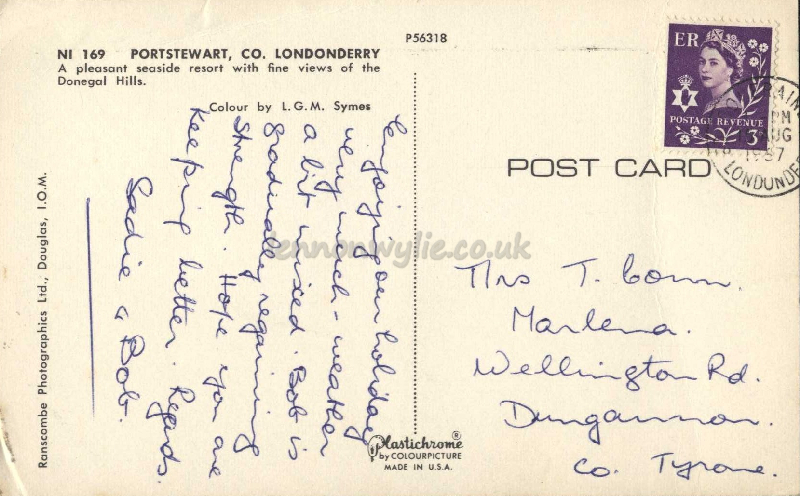 P56318
NI 169 PORTSTEWART, CO. LONDONDERRY
A pleasant seaside resort with fine views of the
Donegal Hills.
Colour by L.G.M. Symes
Enjoying our holiday
very much - weather
a bit mixed. Bob is
gradually regaining
strength. Hope you are
keeping better. Regards.
Sadie & Bob.
Ranscombe Photographics Ltd., Douglas, I.O.M.
lennonwylie.co.uk
Plastichrome®
by COLOURPICTURE
MADE IN U.S.A.
POST CARD
ER
POSTAGE REVENUE
3D
PM
AUG
1967
LONDONDE
Mrs T. Conn.
Marlena.
Wellington Rd.
Dungannon.
Co. Tyrone.